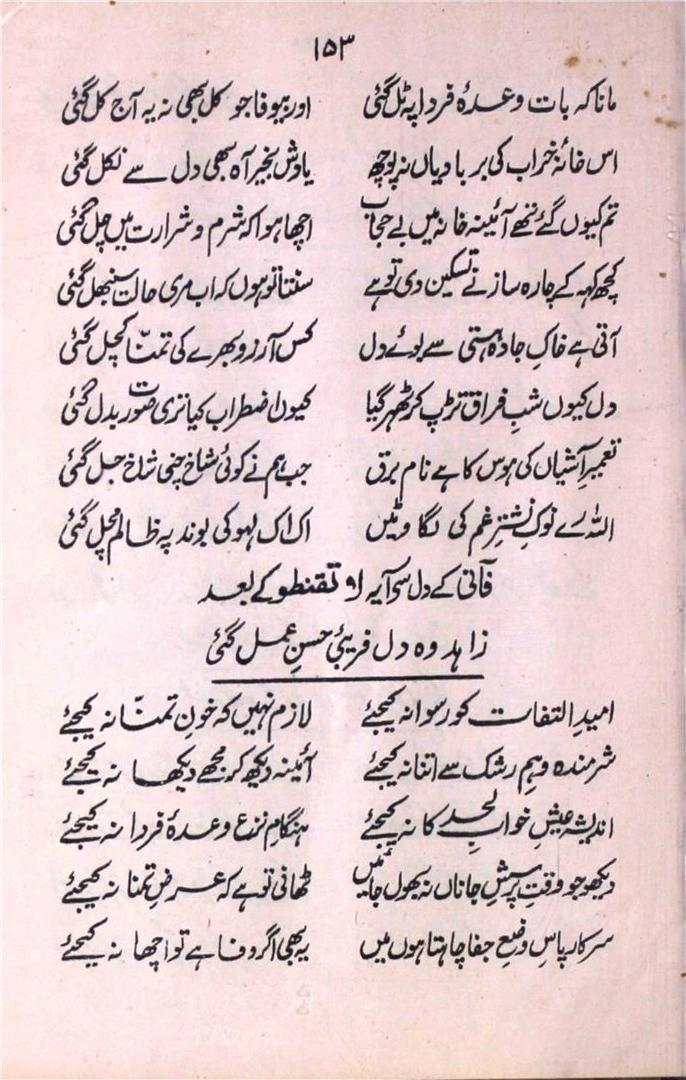 ۱۵۳
مانا کہ بات وعدۂ فردا پہ ٹل گئی اور بیوفا جو کل بھی نہ یہ آج کل گئی
اس خانۂ خراب کی بربادیاں نہ پوچھ یادش بخیر آہ بھی دل سے نکل گئی
تم کیوں گئے تھے آئینہ خانہ میں بے حجاب اچھا ہوا کہ شرم و شرارت میں چل گئی
کچھ کہہ کے چارہ ساز نے تسکین دی تو ہے سنتا تو ہوں کہ اب مری حالت سنبھل گئی
آتی ہے خاکِ جادۂ ہستی سے بوئے دل کس آرزو بھرے کی تمنّا کچل گئی
دل کیوں شبِ فراق تڑپ کر ٹھہر گیا کیوں اضطراب کیا تری صورت بدل گئی
تعمیرِ آشیاں کی ہوس کا ہے نام برق جب ہم نے کوئی شاخ چنی شاخ جل گئی
اللہ رے نوکِ نشترِ غم کی لگاوٹیں اک اک لہو کی بوند پہ ظالم مچل گئی
فانی کے دل سی آیہ لا تقنطو کے بعد
زاہد وہ دل فریبئ حسنِ عمل گئی
امیدِ التفات کو رسوا نہ کیجئے لازم نہیں کہ خونِ تمنّا نہ کیجئے
شرمندہ وہمِ رشک سے اتنا نہ کیجئے آئینہ دیکھ کر مجھے دیکھا نہ کیجئے
اندیشۂ عیشِ خوابِ لحد کا نہ کیجئے ہنگامِ نزع وعدۂ فردا نہ کیجئے
دیکھو جو وقتِ پرسشِ جاناں نہ بھول جائیں ٹھانی تو ہے کہ عرضِ تمنا نہ کیجئے
سرکار پاسِ وضعِ جفا چاہتا ہوں میں یہ بھی اگر وفا ہے تو اچھا نہ کیجئے